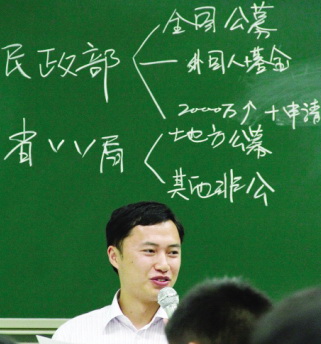 全国公募
民政部
外国人基金
2000万个+申请
省〃〃局
地方公募
非公